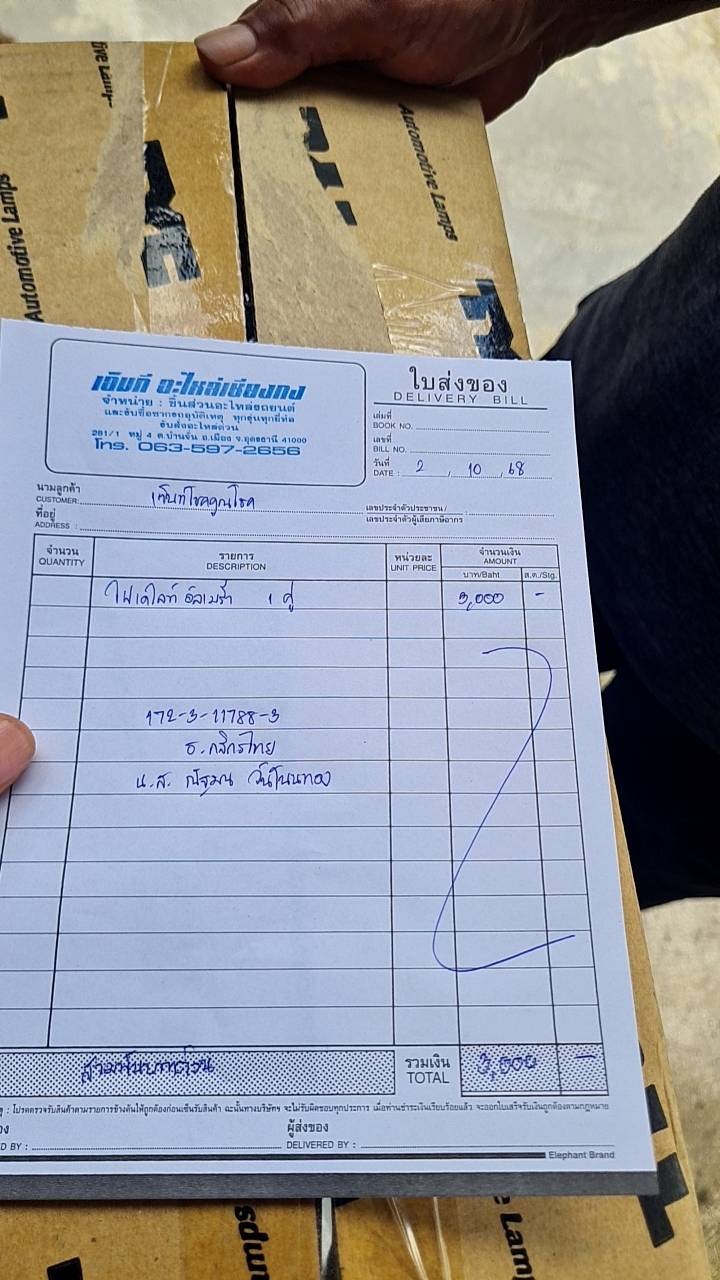 Automotive Lamps
Automotive Lamps
เจิมที อะไหล่เชียงกง
จำหน่าย : ชิ้นส่วนอะไหล่รถยนต์
และรับซื้อซากรถอุบัติเหตุ ทุกรุ่นทุกยี่ห้อ
รับสั่งอะไหล่ด่วน
281/1 หมู่ 4 ต.บ้านจั่น อ.เมือง จ.อุดรธานี 41000
โทร. 063-597-2656
ใบส่งของ
DELIVERY BILL
เล่มที่
BOOK NO.
เลขที่
BILL NO.
วันที่
DATE : 2 , 10 , 68
นามลูกค้า
CUSTOMER
ที่อยู่
ADDRESS :
เลขประจำตัวประชาชน/
เลขประจำตัวผู้เสียภาษีอากร :
จำนวน รายการ หน่วยละ จำนวนเงิน
QUANTITY DESCRIPTION UNIT PRICE AMOUNT
บาท/Baht ส.ต./Stg.
ไฟเดไลท์ อัลเมร่า 1 คู่ 3,000 -
172-3-11788-3
ธ.กสิกรไทย
น.ส. ณัฐมน วันโนนทอง
สามพันบาทถ้วน รวมเงิน 3,000 -
TOTAL
: โปรดตรวจรับสินค้าตามรายการข้างต้นให้ถูกต้องก่อนเซ็นรับสินค้า ฉะนั้นทางบริษัทฯ จะไม่รับผิดชอบทุกประการ เมื่อท่านชำระเงินเรียบร้อยแล้ว จะออกใบเสร็จรับเงินถูกต้องตามกฎหมาย
ผู้ส่งของ
D BY : DELIVERED BY :
Elephant Brand